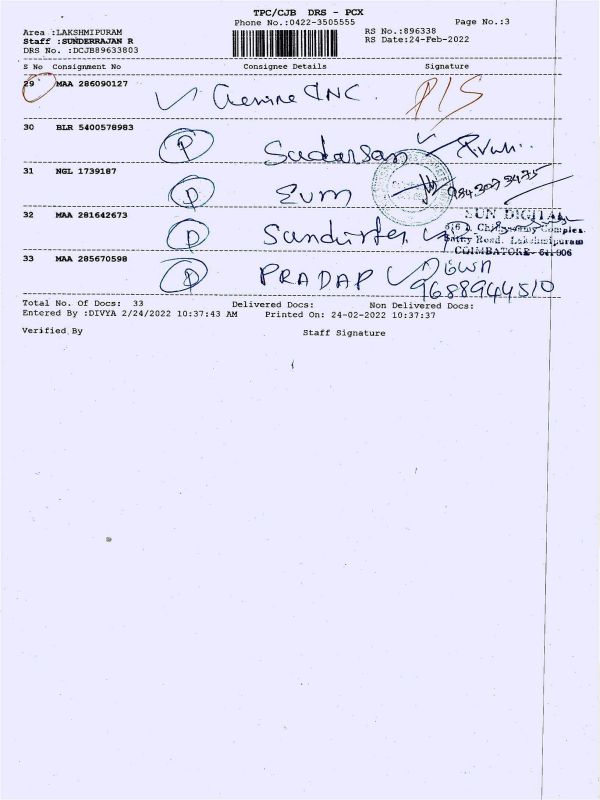 TPC/CJB DRS - PCX
Phone No.:0422-3505555 Page No.:3
Area :LAKSHMIPURAM RS No.:896338
Staff :SUNDERRAJAN R RS Date:24-Feb-2022
DRS No. :DCJB89633803
S No Consignment No Consignee Details Signature
29 MAA 286090127 INC P/S
30 BLR 5400578983 P Sudarsan
31 NGL 1739187 P
SUN DIGITAL
32 MAA 281642673 P
Sathy Road, Lakshmipuram
COIMBATORE- 641006
33 MAA 285670598 P PRADAP
9688944510
Total No. Of Docs: 33 Delivered Docs: Non Delivered Docs:
Entered By :DIVYA 2/24/2022 10:37:43 AM Printed On: 24-02-2022 10:37:37
Verified By Staff Signature